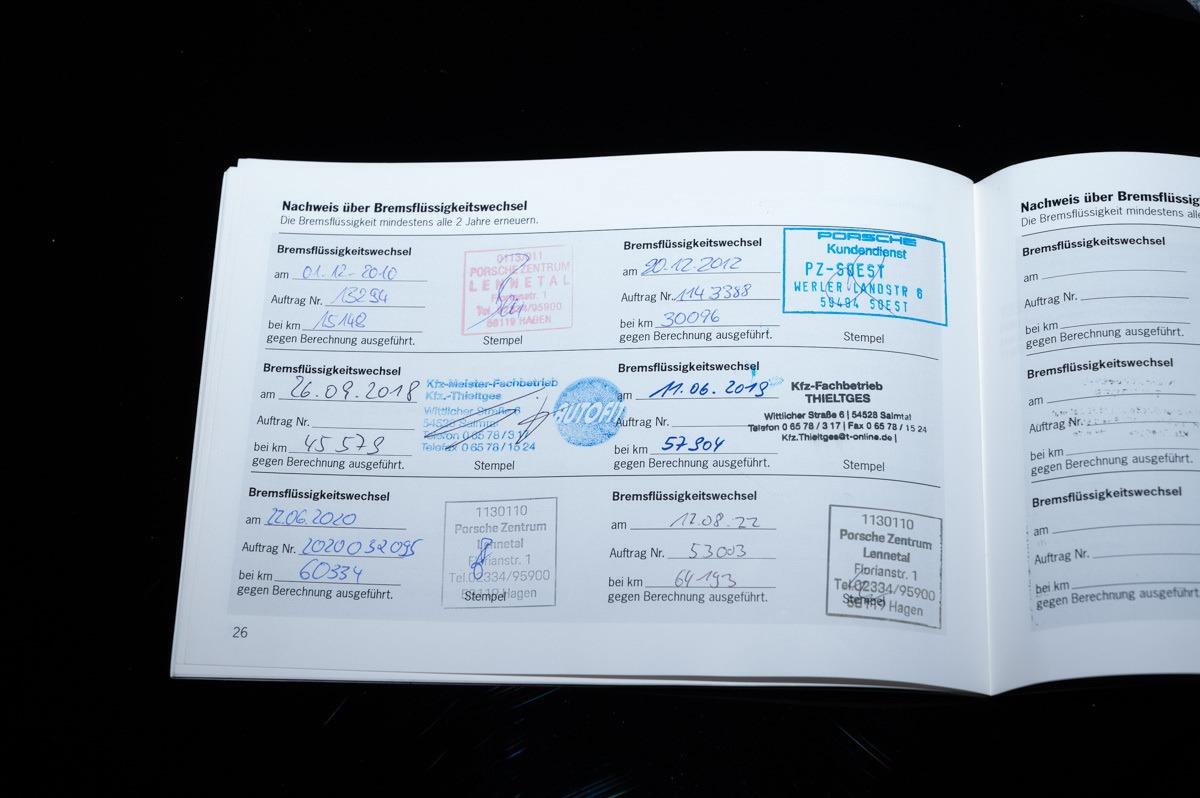 Nachweis über Bremsflüssigkeitswechsel
Die Bremsflüssigkeit mindestens alle 2 Jahre erneuern.
Bremsflüssigkeitswechsel
am 01.12-2010
Auftrag Nr. 13294
bei km 15148
gegen Berechnung ausgeführt.
PORSCHE ZENTRUM
LENNETAL
Florianstr. 1
58119 HAGEN
Stempel
Bremsflüssigkeitswechsel
am 20.12.2012
Auftrag Nr. 1143388
bei km 30096
gegen Berechnung ausgeführt.
PORSCHE
Kundendienst
PZ-SOEST
WERLER LANDSTR 6
59494 SOEST
Stempel
Bremsflüssigkeitswechsel
am 26.09.2018
Auftrag Nr.
bei km 45579
gegen Berechnung ausgeführt.
Kfz-Meister-Fachbetrieb
Kfz.-Thieltges
Wittlicher Straße 6
54528 Salmtal
Telefon 0 65 78 / 3 17
Telefax 0 65 78 / 15 24
AUTOFIT
Stempel
Bremsflüssigkeitswechsel
am 11.06.2019
Auftrag Nr.
bei km 57904
gegen Berechnung ausgeführt.
Kfz-Fachbetrieb
THIELTGES
Wittlicher Straße 6 | 54528 Salmtal
Telefon 0 65 78 / 3 17 | Fax 0 65 78 / 15 24
Kfz.Thieltges@t-online.de |
Stempel
Bremsflüssigkeitswechsel
am 22.06.2020
Auftrag Nr. 2020032095
bei km 60334
gegen Berechnung ausgeführt.
1130110
Porsche Zentrum
Lennetal
Florianstr. 1
Tel.02334/95900
58119 Hagen
Stempel
Bremsflüssigkeitswechsel
am 17.08.22
Auftrag Nr. 53003
bei km 64193
gegen Berechnung ausgeführt.
1130110
Porsche Zentrum
Lennetal
Florianstr. 1
Tel.02334/95900
58119 Hagen
Stempel
26
Nachweis über Bremsflüssig
Die Bremsflüssigkeit mindestens alle
Bremsflüssigkeitswechsel
am
Auftrag Nr.
bei km
gegen Berechnung ausgeführt.
Bremsflüssigkeitswechsel
am
Auftrag Nr.
bei km
gegen Berechnung ausgeführt.
Bremsflüssigkeitswechsel
am
Auftrag Nr.
bei km
gegen Berechnung ausgeführt